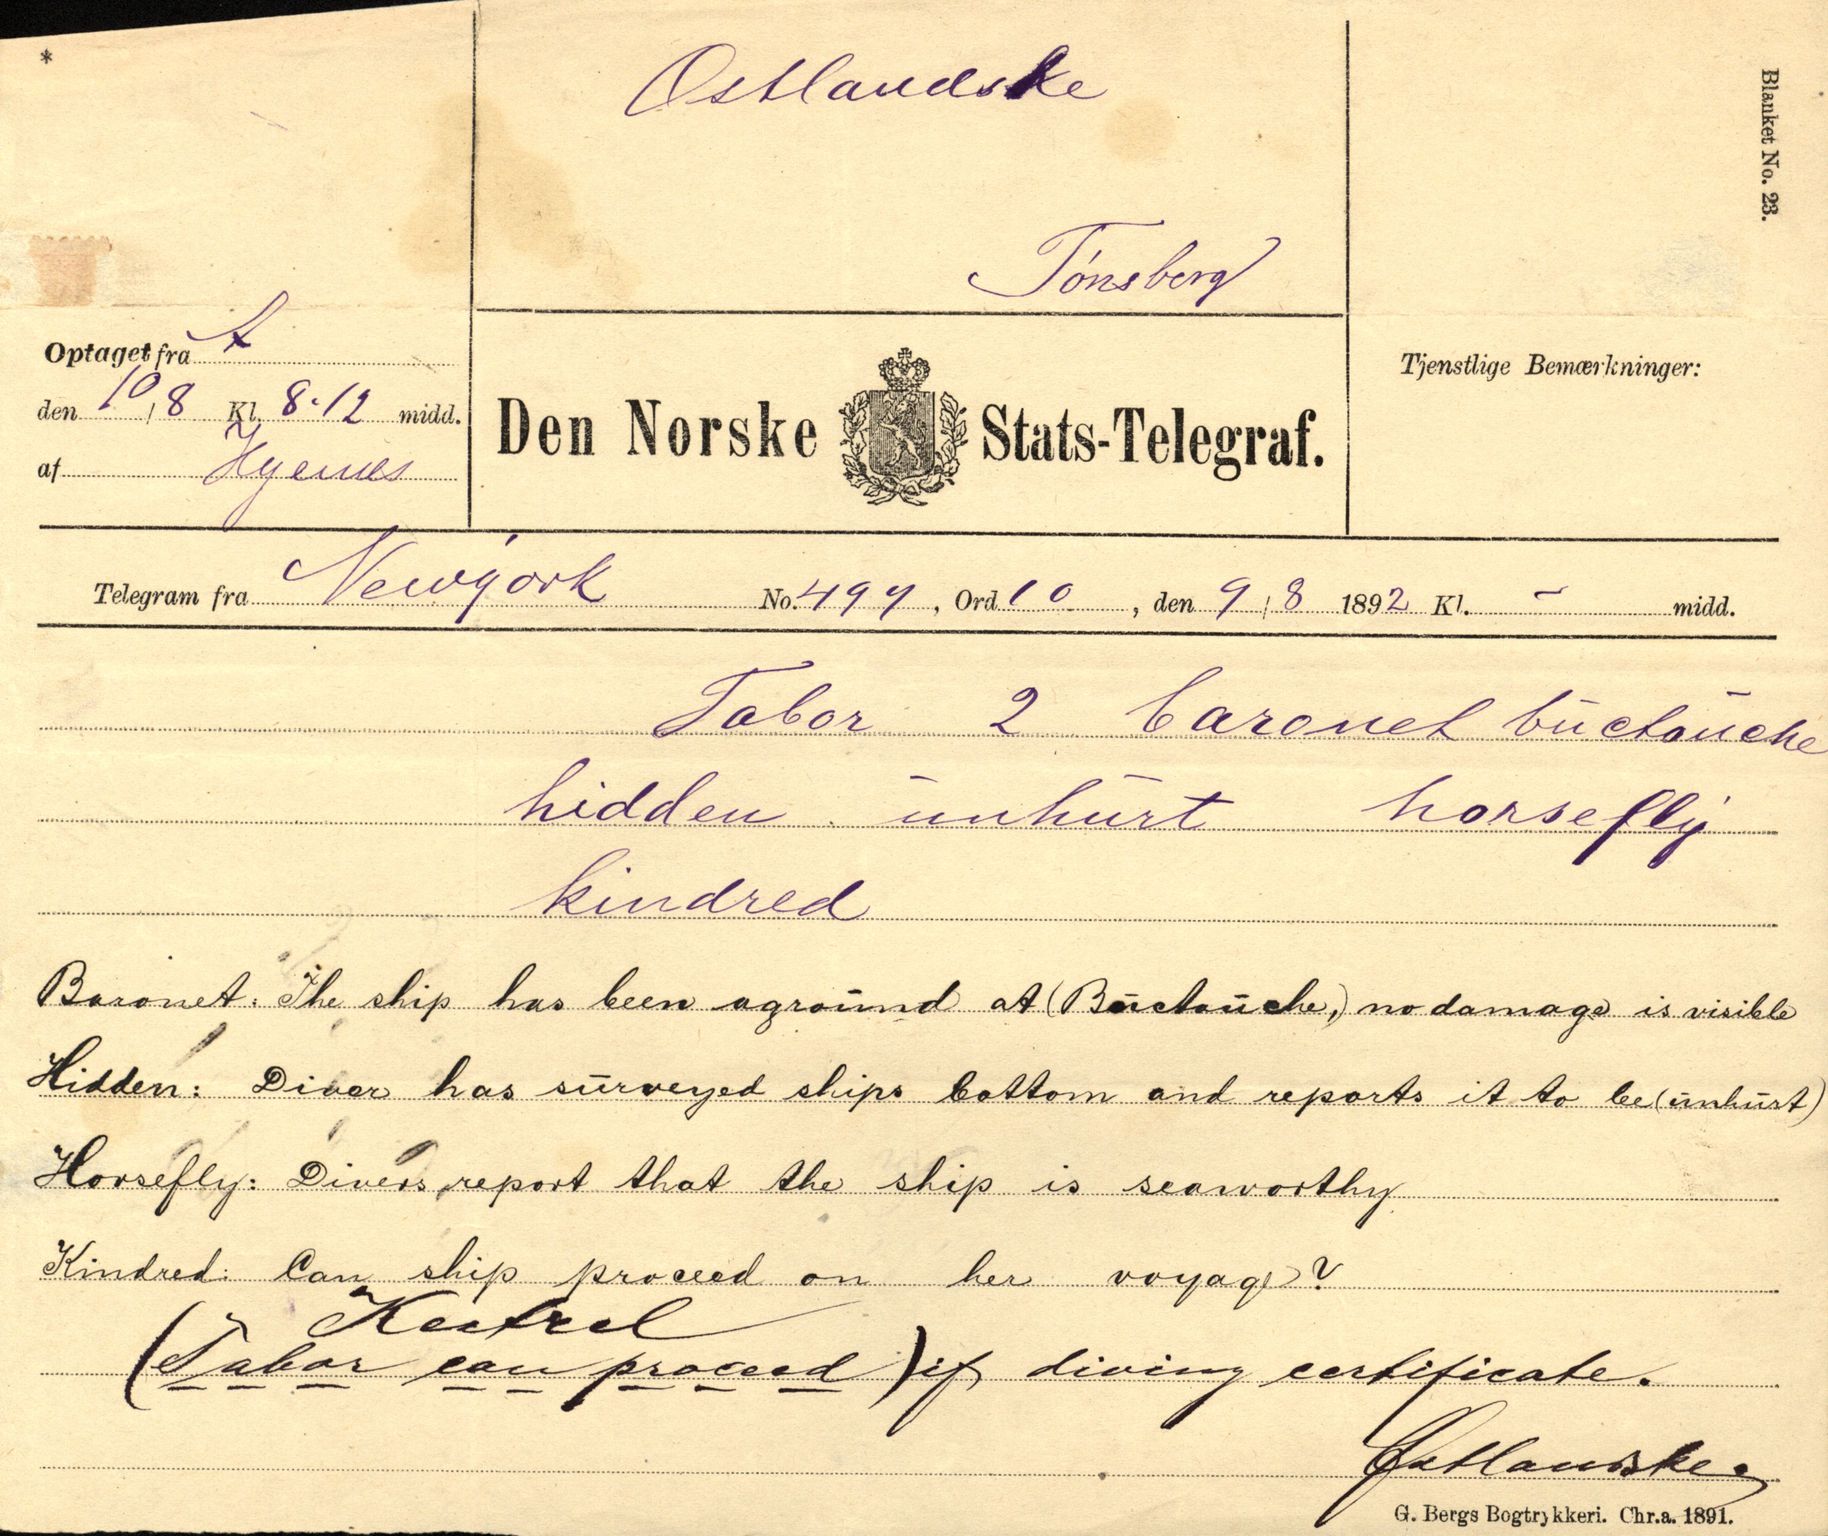 *
Ostlandske
Blanket No. 23.
Tønsberg
Optaget fra A
den 10/8 Kl. 8.12 midd.
af
Den Norske Stats-Telegraf.
Tjenstlige Bemærkninger:
Telegram fra Newyork No. 497, Ord 10, den 9/8 1892 Kl. - midd.
Tabor 2 baronet buctouche
hidden unhurt horsefly
kindred
Baronet: The ship has been aground at (Buctouche,) no damage is visible
Hidden: Diver has surveyed ships bottom and reports it to be (unhurt)
Horsefly: Divers report that the ship is seaworthy
Kindred: Can ship proceed on her voyage?
Kestrel
(Tabor can proceed) if diving certificate.
Østlandske.
G. Bergs Bogtrykkeri. Chr.a. 1891.